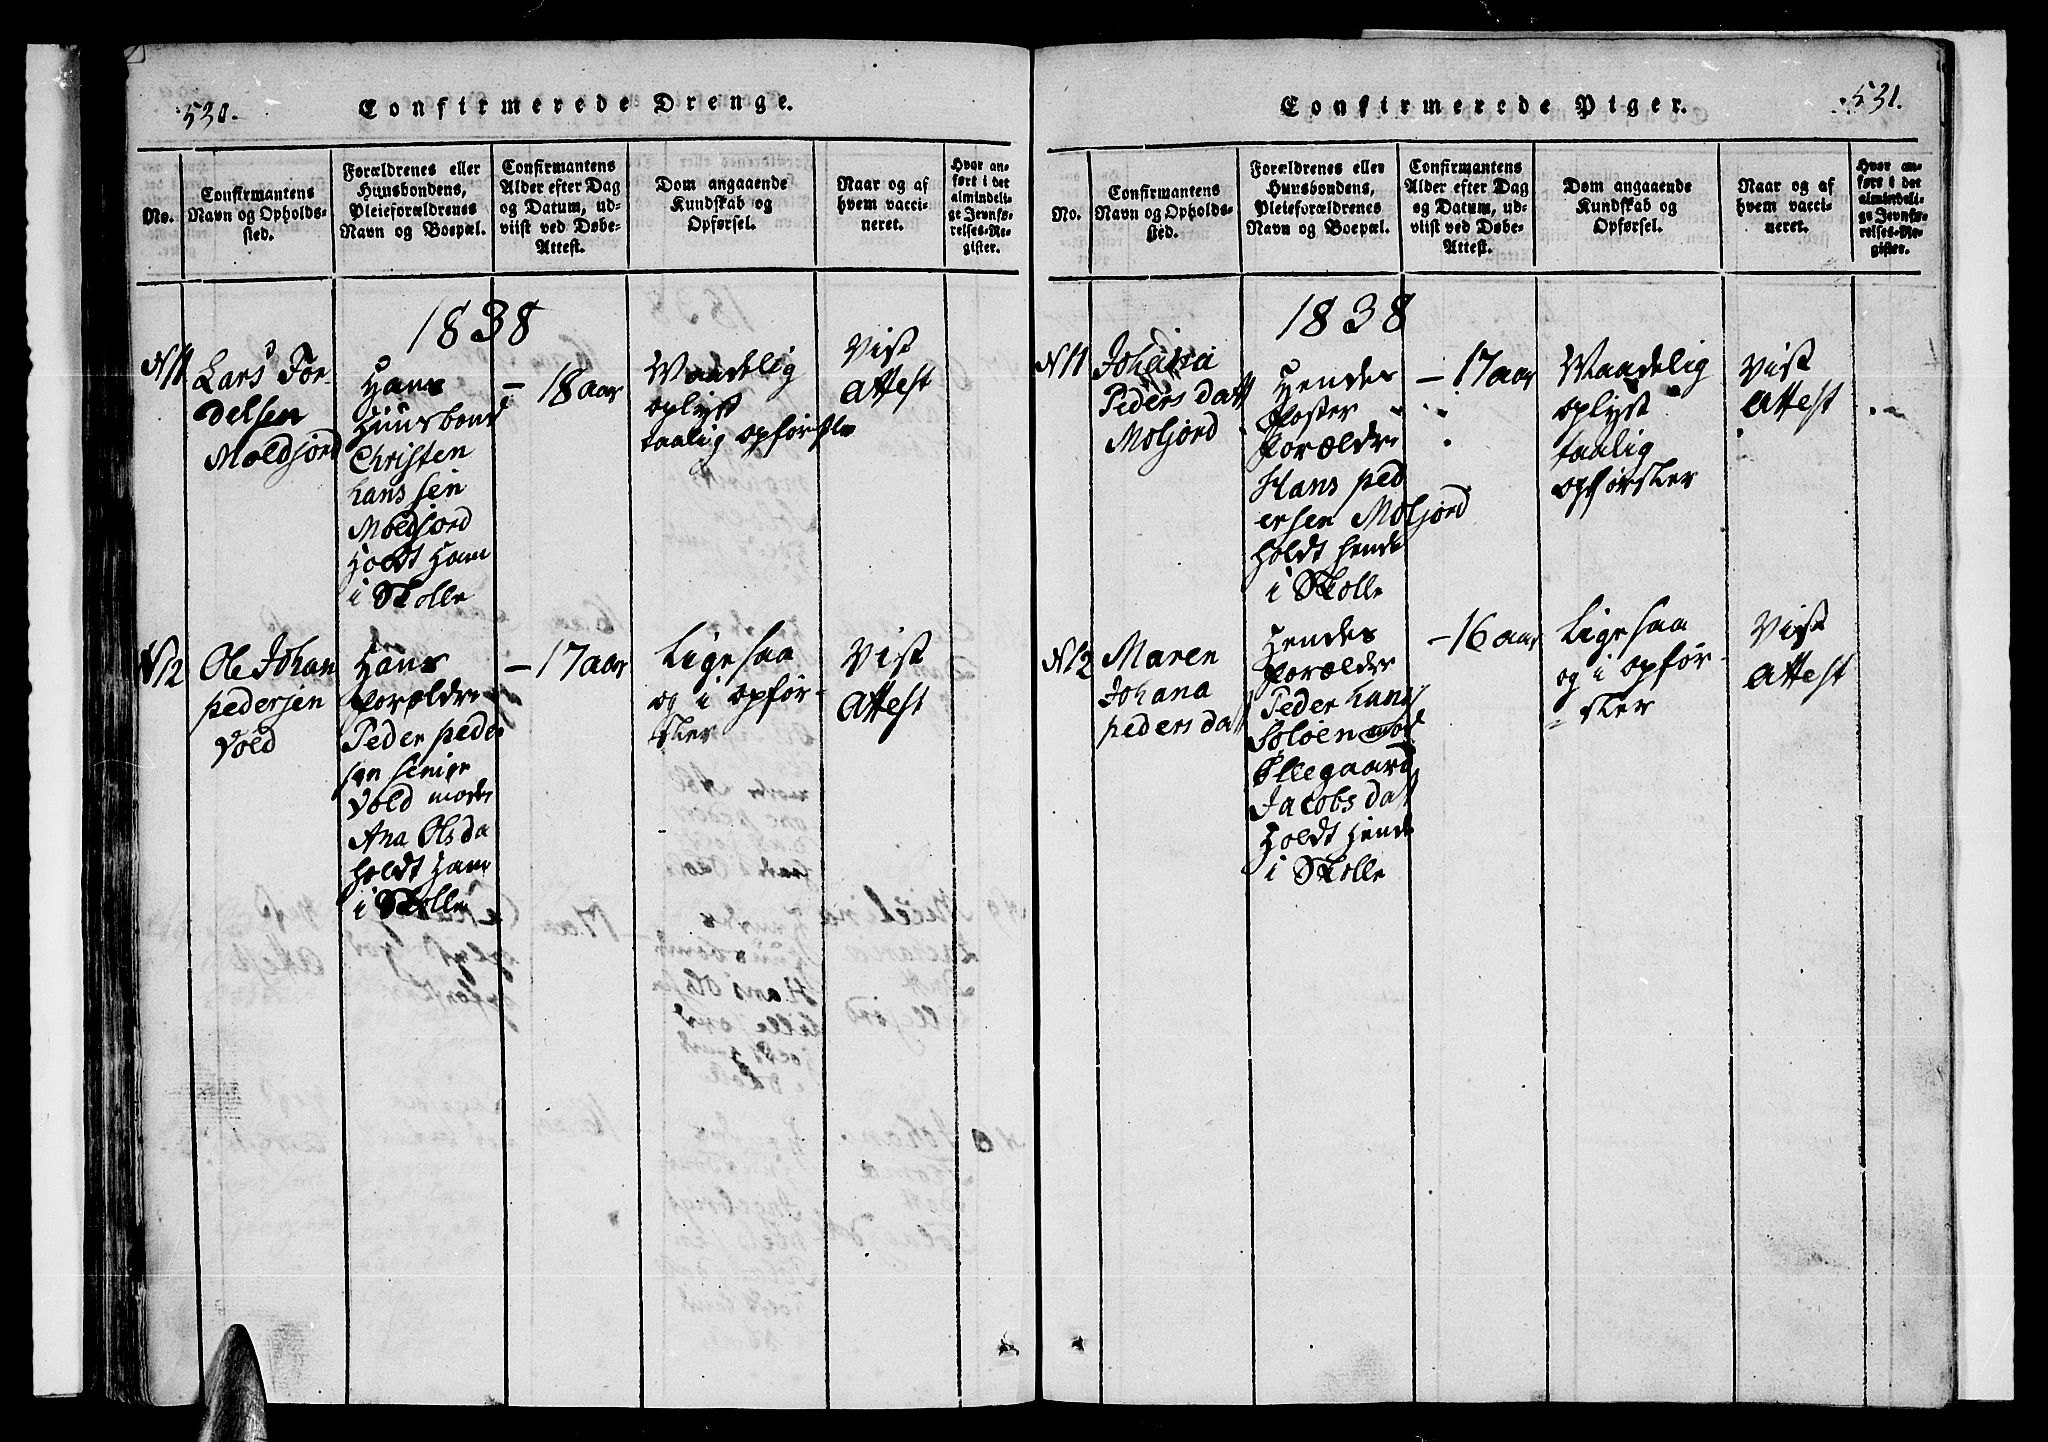 530.
Confirmerede Drenge.
No.
Confirmantens
Navn og Opholds-
sted.
Forældrenes eller
Huusbondens,
Pleieforældrenes
Navn og Boepæl.
Confirmantens
Alder efter Dag
og Datum, ud-
viist ved Døbe-
Attest.
Dom angaaende
Kundskab og
Opførsel.
Naar og af
hvem vacci-
neret.
Hvor an-
ført i det
almindeli-
ge Jevnfø-
relses-Re-
gister.
1838
N 11
Lars For-
delsen
Moldjord
Hans
Huusbond
Christen
hanssen
Moldjord
Holdt Ham
i Skolle
- 18 aar
Maadelig
oplyst
taalig opførsle
Vist
Attest
N 12
Ole Johan
pedersen
Vold
Hans
Forældre
Peder peder
sen senior
Vold moder
Ana Ols da
holdt Ham
i Skolle
- 17 aar
Ligesaa
og i opfør-
sler
Vist
Attest
531.
Confirmerede Piger.
No.
Confirmantens
Navn og Opholds-
sted.
Forældrenes eller
Huusbondens,
Pleieforældrenes
Navn og Boepæl.
Confirmantens
Alder efter Dag
og Datum, ud-
viist ved Døbe-
Attest.
Dom angaaende
Kundskab og
Opførsel.
Naar og af
hvem vacci-
neret.
Hvor an-
ført i det
almindeli-
ge Jevnfø-
relses-Re-
gister.
1838
N 11
Johana
Peders datt
Moljord
Hendes
Foster
Forældre
Hans ped
ersen Moljord
holdt hende
i Skolle
- 17 aar
Maadelig
oplyst
taalig
opførsler
Vist
Attest
N 12
Maren
Johana
peders datt
Hendes
Forælder
Peder hans
Soløen mod
Øllegaard
Jacobs datt
Holdt Hende
i Skolle
- 16 aar
Ligesaa
og i opfør-
sler
Vist
Attest